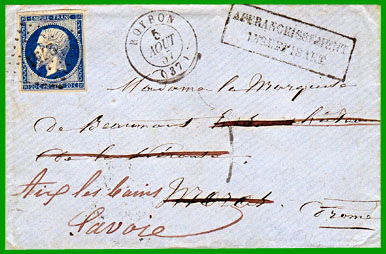 EMPIRE FRANC
20 C POSTES 20 C
ROYBON
5
AOUT
57
(37)
AFFRANCHISSEMENT
INSUFFISANT
Madame la Marquise
de Beaumont
de la
Aix les bains
Savoie
Drome